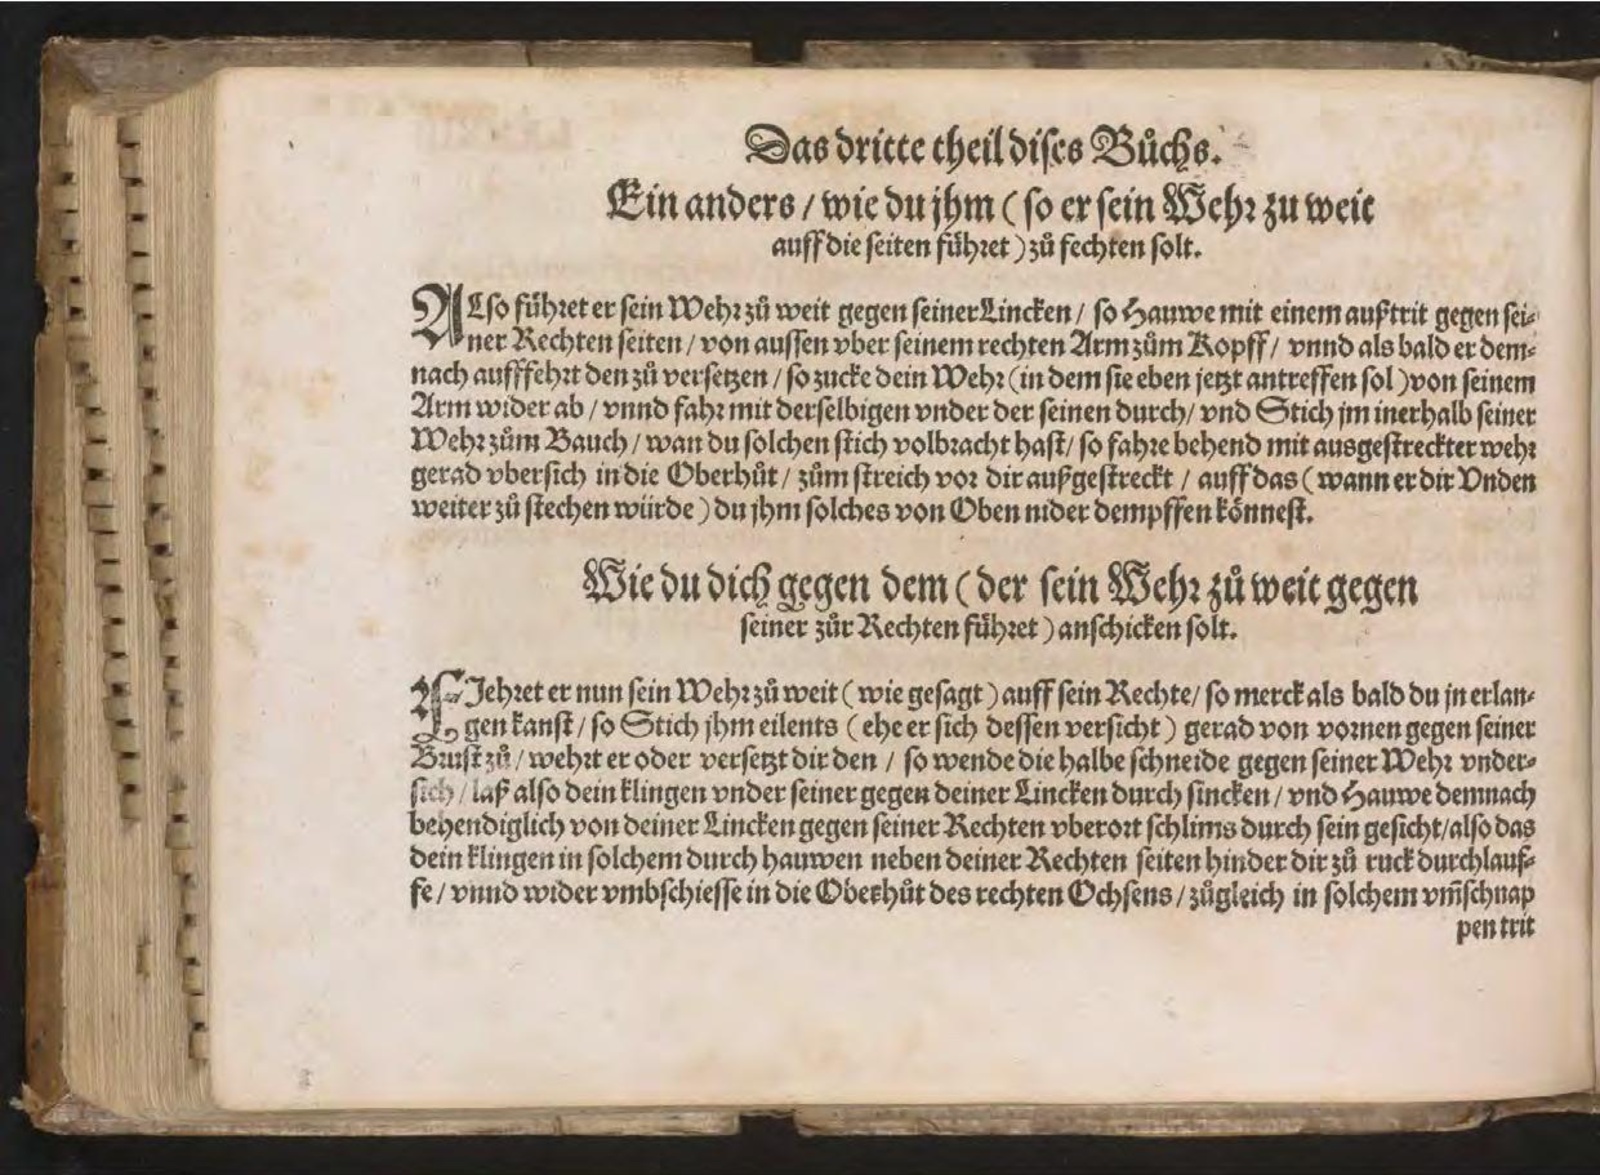 Das dritte theil dises Bůchs.
Ein anders / wie du jhm ( so er sein Wehr zu weit
auff die seiten fůhret ) zů fechten solt.
ALso fůhret er sein Wehr zů weit gegen seiner Lincken / so Hauwe mit einem außtrit gegen sei⸗
ner Rechten seiten / von aussen vber seinem rechten Arm zům Kopff / vnnd als bald er dem⸗
nach aufffehrt den zů versetzen / so zucke dein Wehr ( in dem sie eben jetzt antreffen sol ) von seinem
Arm wider ab / vnnd fahr mit derselbigen vnder der seinen durch / vnd Stich jm inerhalb seiner
Wehr zům Bauch / wan du solchen stich volbracht hast / so fahre behend mit ausgestreckter wehr
gerad vbersich in die Oberhůt / zům streich vor dir außgestreckt / auff das ( wann er dir Vnden
weiter zů stechen würde ) du jhm solches von Oben nider dempffen könnest.
Wie du dich gegen dem ( der sein Wehr zů weit gegen
seiner zůr Rechten fůhret ) anschicken solt.
FJehret er nun sein Wehr zů weit ( wie gesagt ) auff sein Rechte / so merck als bald du jn erlan⸗
gen kanst / so Stich jhm eilents ( ehe er sich dessen versicht ) gerad von vornen gegen seiner
Brust zů / wehrt er oder versetzt dir den / so wende die halbe schneide gegen seiner Wehr vnder⸗
sich / laß also dein klingen vnder seiner gegen deiner Lincken durch sincken / vnd Hauwe demnach
behendiglich von deiner Lincken gegen seiner Rechten vberort schlims durch sein gesicht / also das
dein klingen in solchem durch hauwen neben deiner Rechten seiten hinder dir zů ruck durchlauf⸗
fe / vnnd wider vmbschiesse in die Oberhůt des rechten Ochsens / zůgleich in solchem vm̃schnap
pen trit